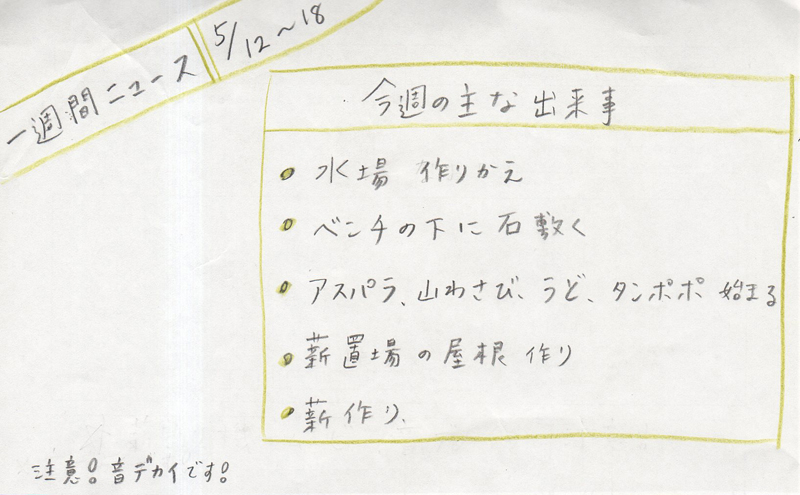 一週間ニュース 5/12〜18
今週の主な出来事
水場 作りかえ
ベンチの下に石敷く
アスパラ、山わさび、うど、タンポポ 始まる
薪置場の屋根 作り
薪作り
注意!音デカイです!